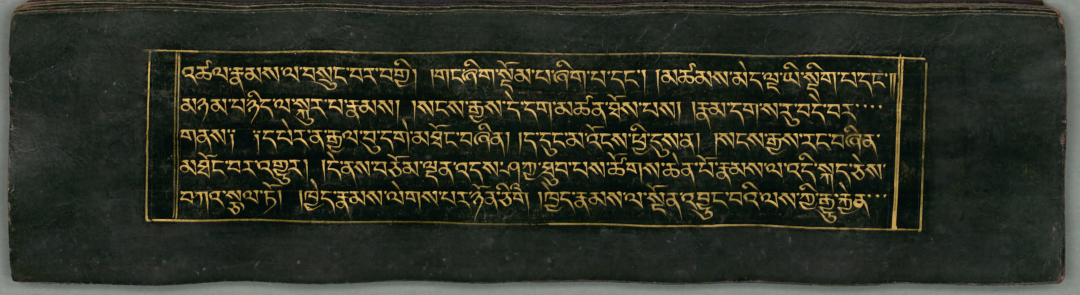 འཚལ་རྣམས་ལ་བསྲུང་བར་བགྱི། །གང་ཞིག་སྡོམ་པ་ཞིག་པ་དང་། །མཚམས་མེད་ལྔ་ཡི་སྡིག་པ་དང་༎
མཉམ་པ་ཉིད་ལ་སྐུར་པ་རྣམས། །སངས་རྒྱས་དེ་དག་མཚན་ཐོས་པས། །རྣམ་དག་ས་རུ་བདེ་བར་
གནས། །དཔེར་ན་རྒྱལ་བུ་དགེ་མཐོང་བཞིན། །ད་དུང་མ་འོངས་ཕྱི་དུས་ན། །སངས་རྒྱས་རང་བཞིན་
མཐོང་བར་འགྱུར། །དེ་ནས་བཅོམ་ལྡན་འདས་ཤཀྱ་ཐུབ་པས་ཚོགས་ཆེན་པོ་རྣམས་ལ་འདི་སྐད་ཅེས་
བཀའ་སྩལ་ཏོ། །ཁྱེད་རྣམས་ལེགས་པར་ཉོན་ཅིག །ཁྱེད་རྣམས་ལ་སྔོན་འབྱུང་བའི་ལས་ཀྱི་རྒྱུ་རྐྱེན་